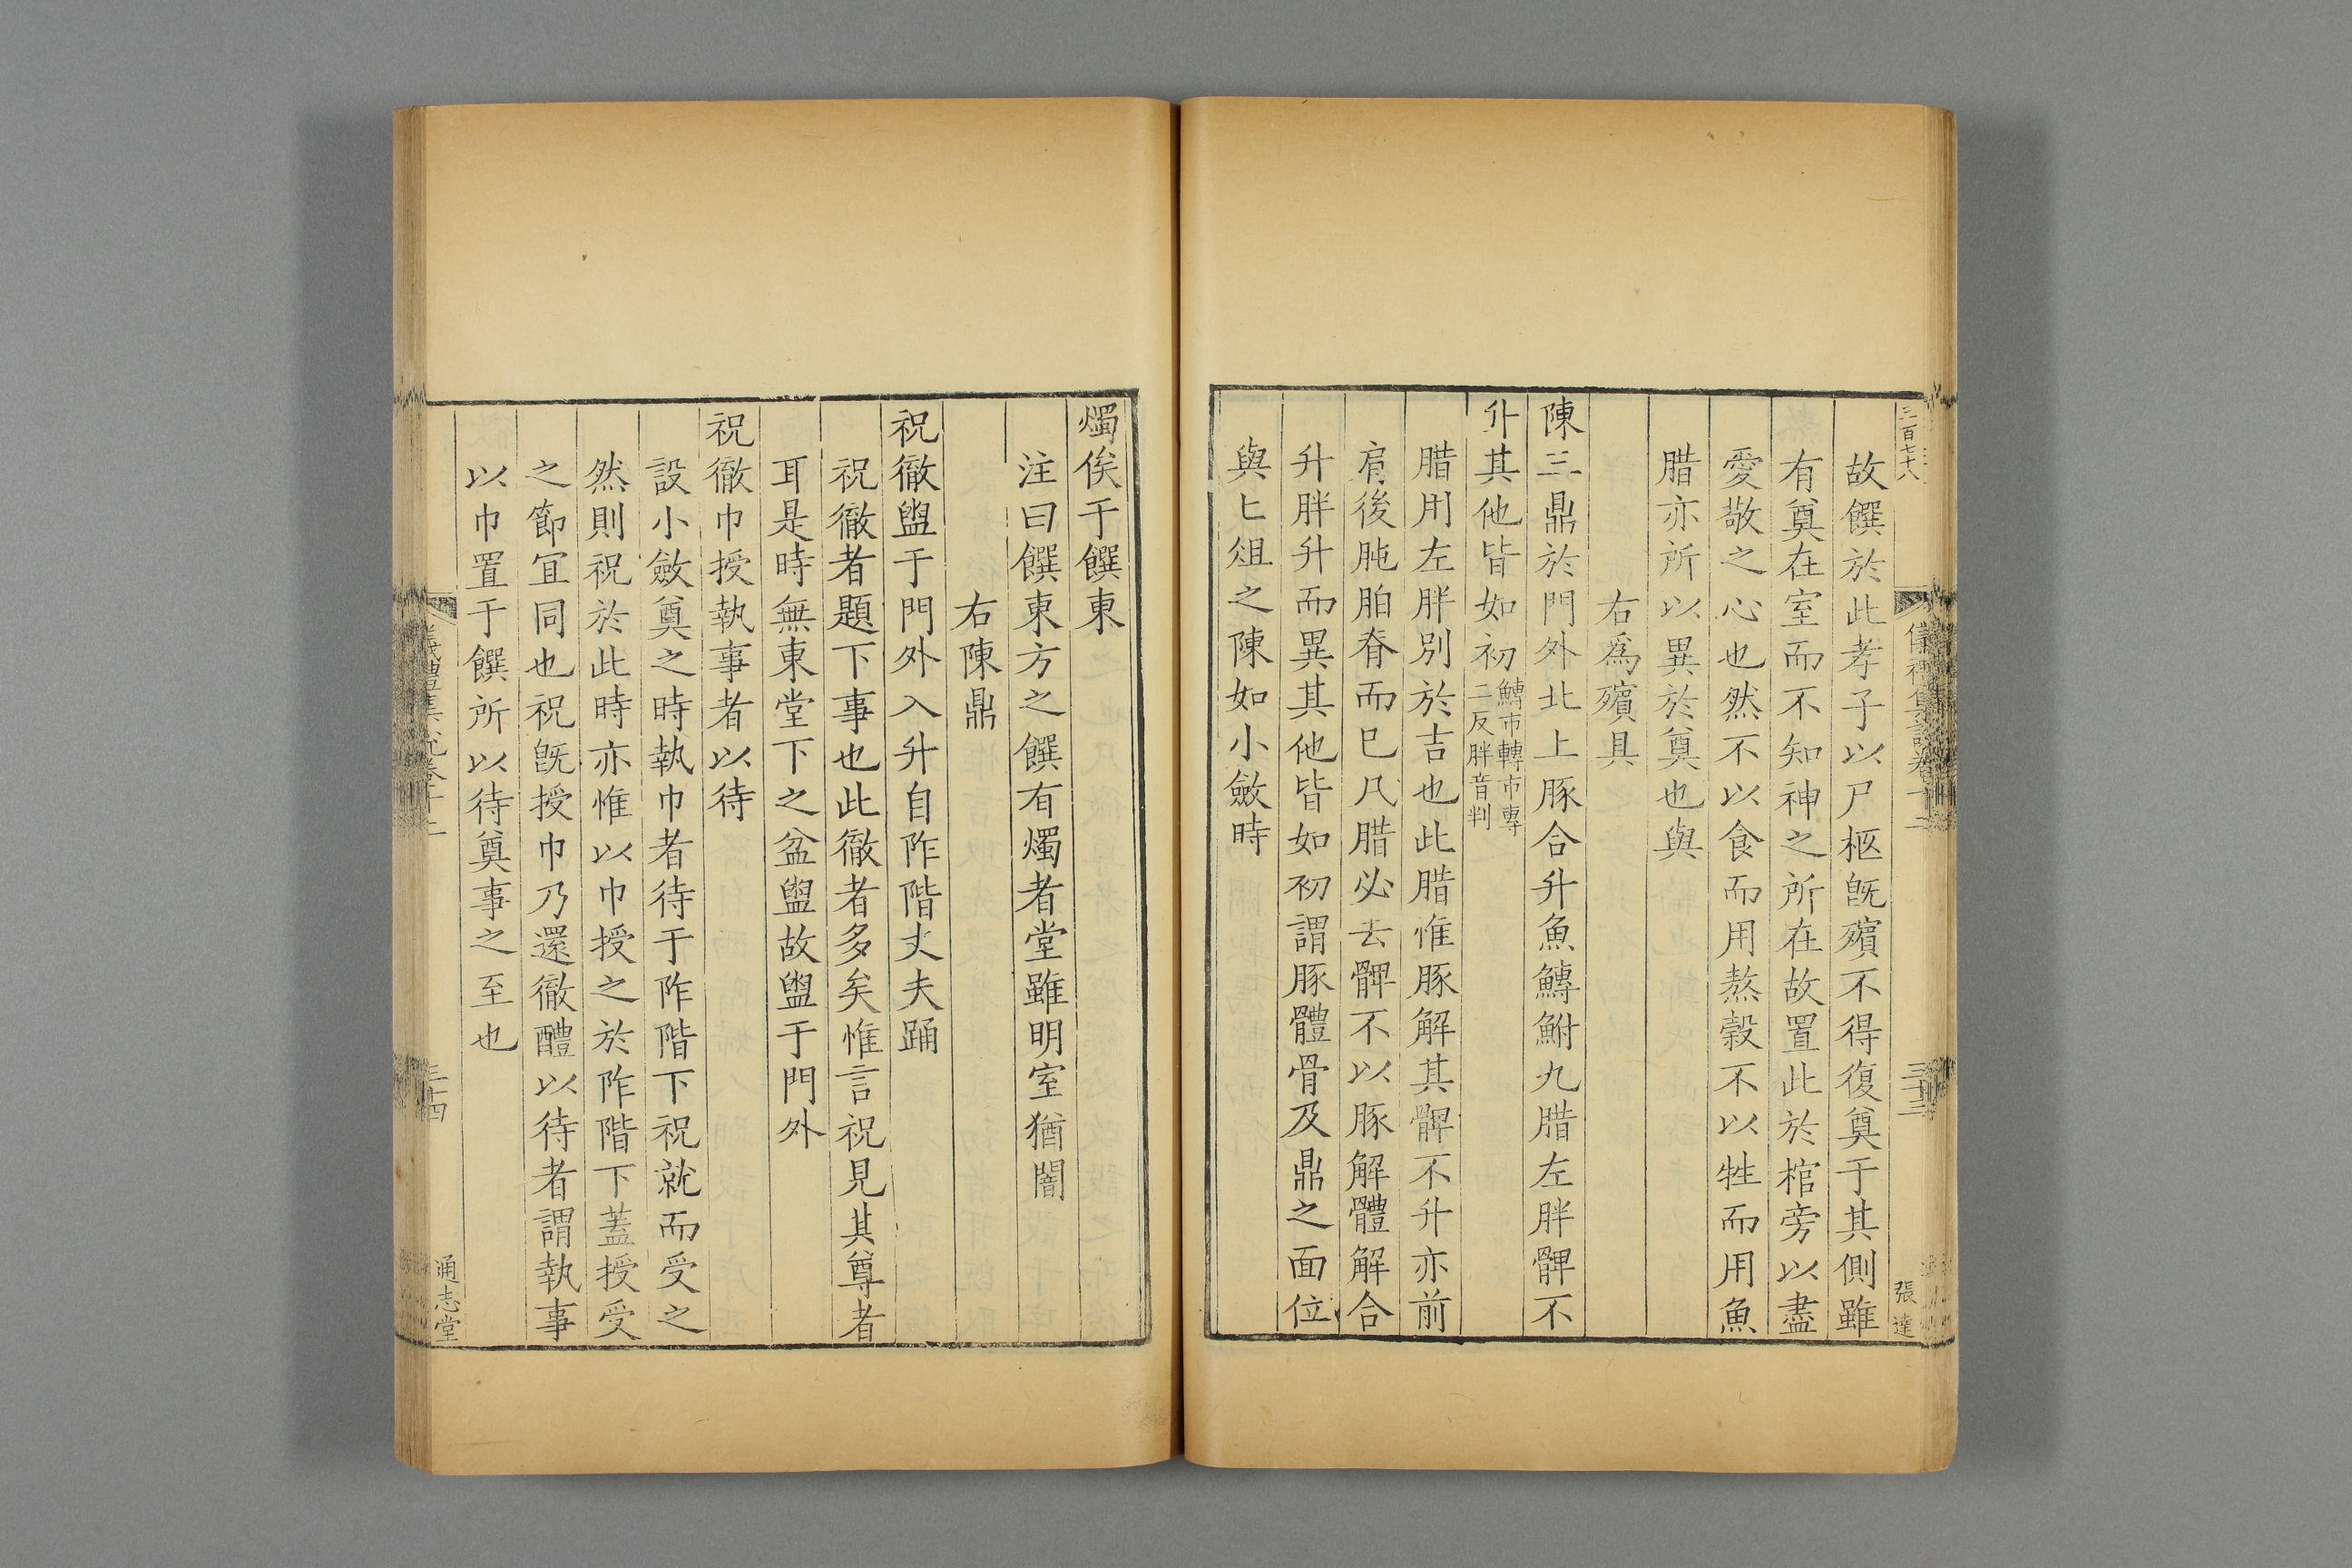 三百七十八
儀禮集說卷十二
三十三
張達
故饌於此孝子以尸柩旣殯不得復奠于其側雖
有奠在室而不知神之所在故置此於棺旁以盡
愛敬之心也然不以食而用熬穀不以牲而用魚
腊亦所以異於奠也與
右爲殯具
陳三鼎於門外北上豚合升魚鱄鮒九腊左胖髀不
升其他皆如初鱄市轉市專二反胖音判
腊用左胖別於吉也此腊惟豚解其髀不升亦前
肩後肫胉脊而巳凡腊必去髀不以豚解體解合
升胖升而異其他皆如初謂豚體骨及鼎之面位
與匕俎之陳如小斂時
燭俟于饌東
注曰饌東方之饌有燭者堂雖明室猶闇
右陳鼎
祝徹盥于門外入升自阼階丈夫踊
祝徹者題下事也此徹者多矣惟言祝見其尊者
耳是時無東堂下之盆盥故盥于門外
祝徹巾授執事者以待
設小斂奠之時執巾者待于阼階下祝就而受之
然則祝於此時亦惟以巾授之於阼階下蓋授受
之節宜同也祝旣授巾乃還徹醴以待者謂執事
以巾置于饌所以待奠事之至也
儀禮集說卷十二
三十四
通志堂